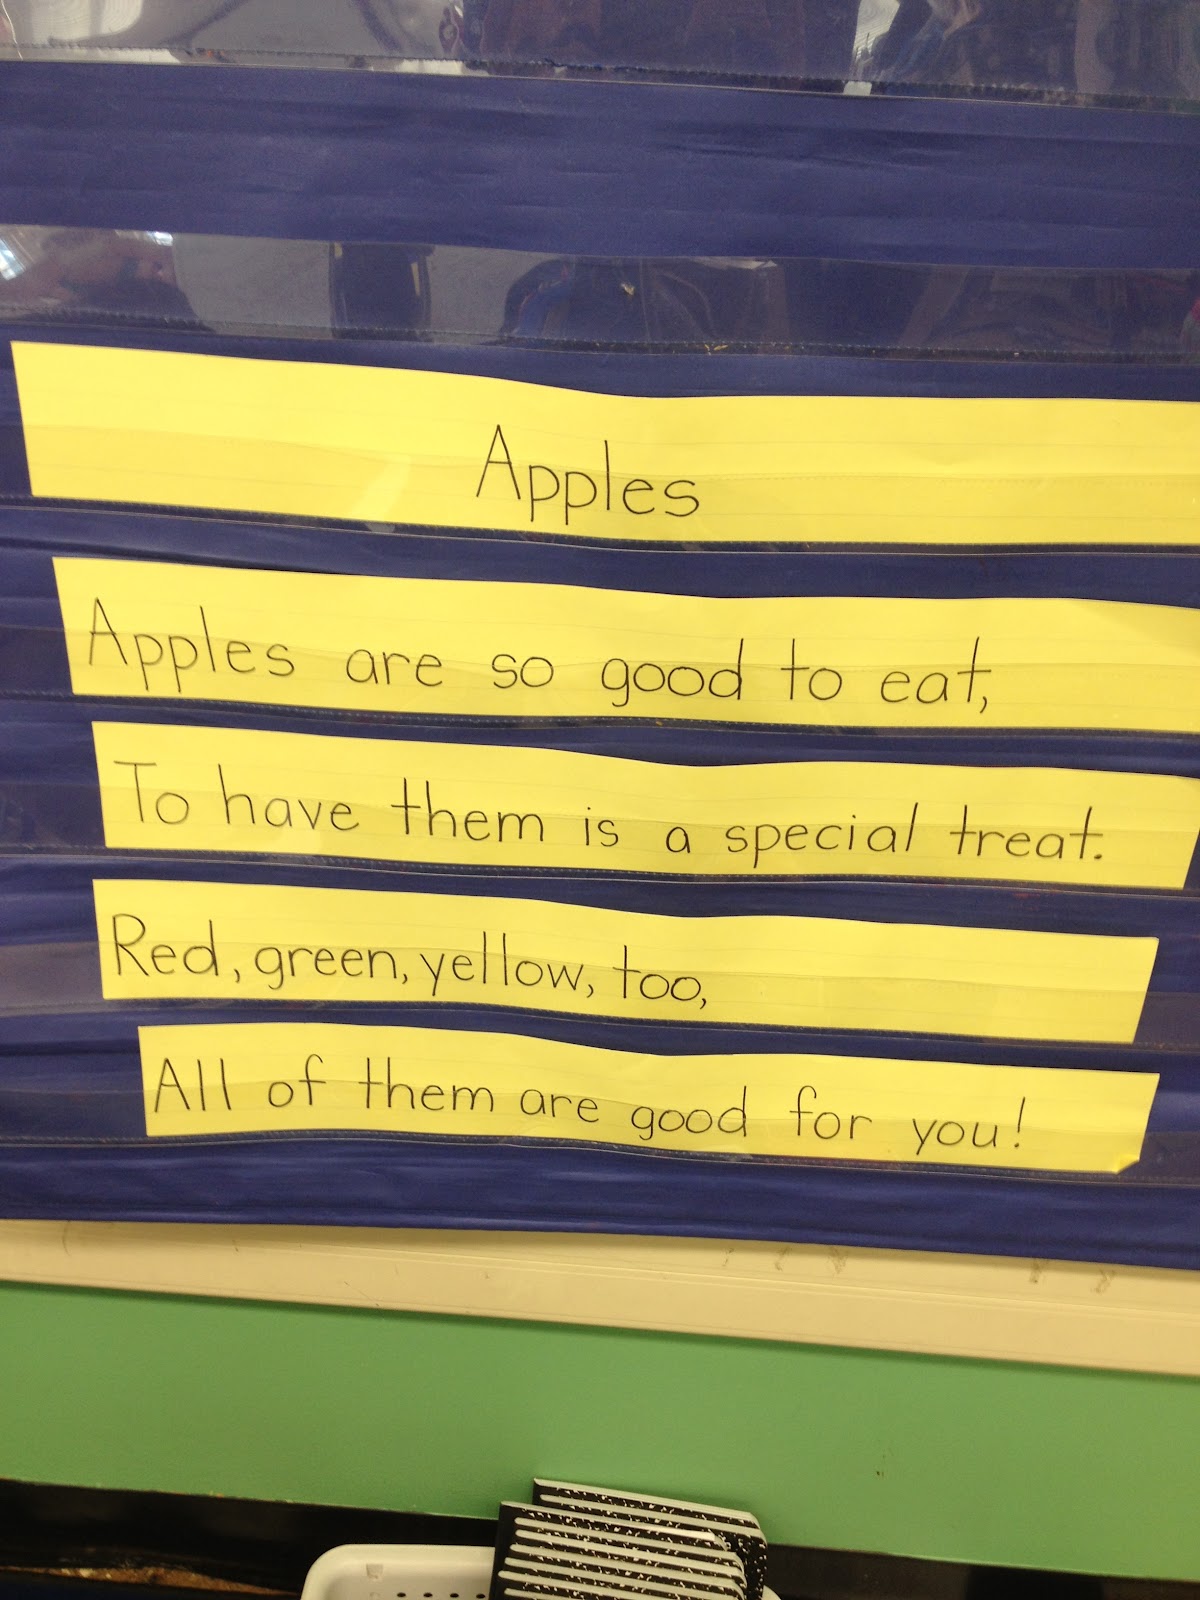 Apples
Apples are so good to eat,
To have them is a special treat.
Red, green, yellow, too,
All of them are good for you!